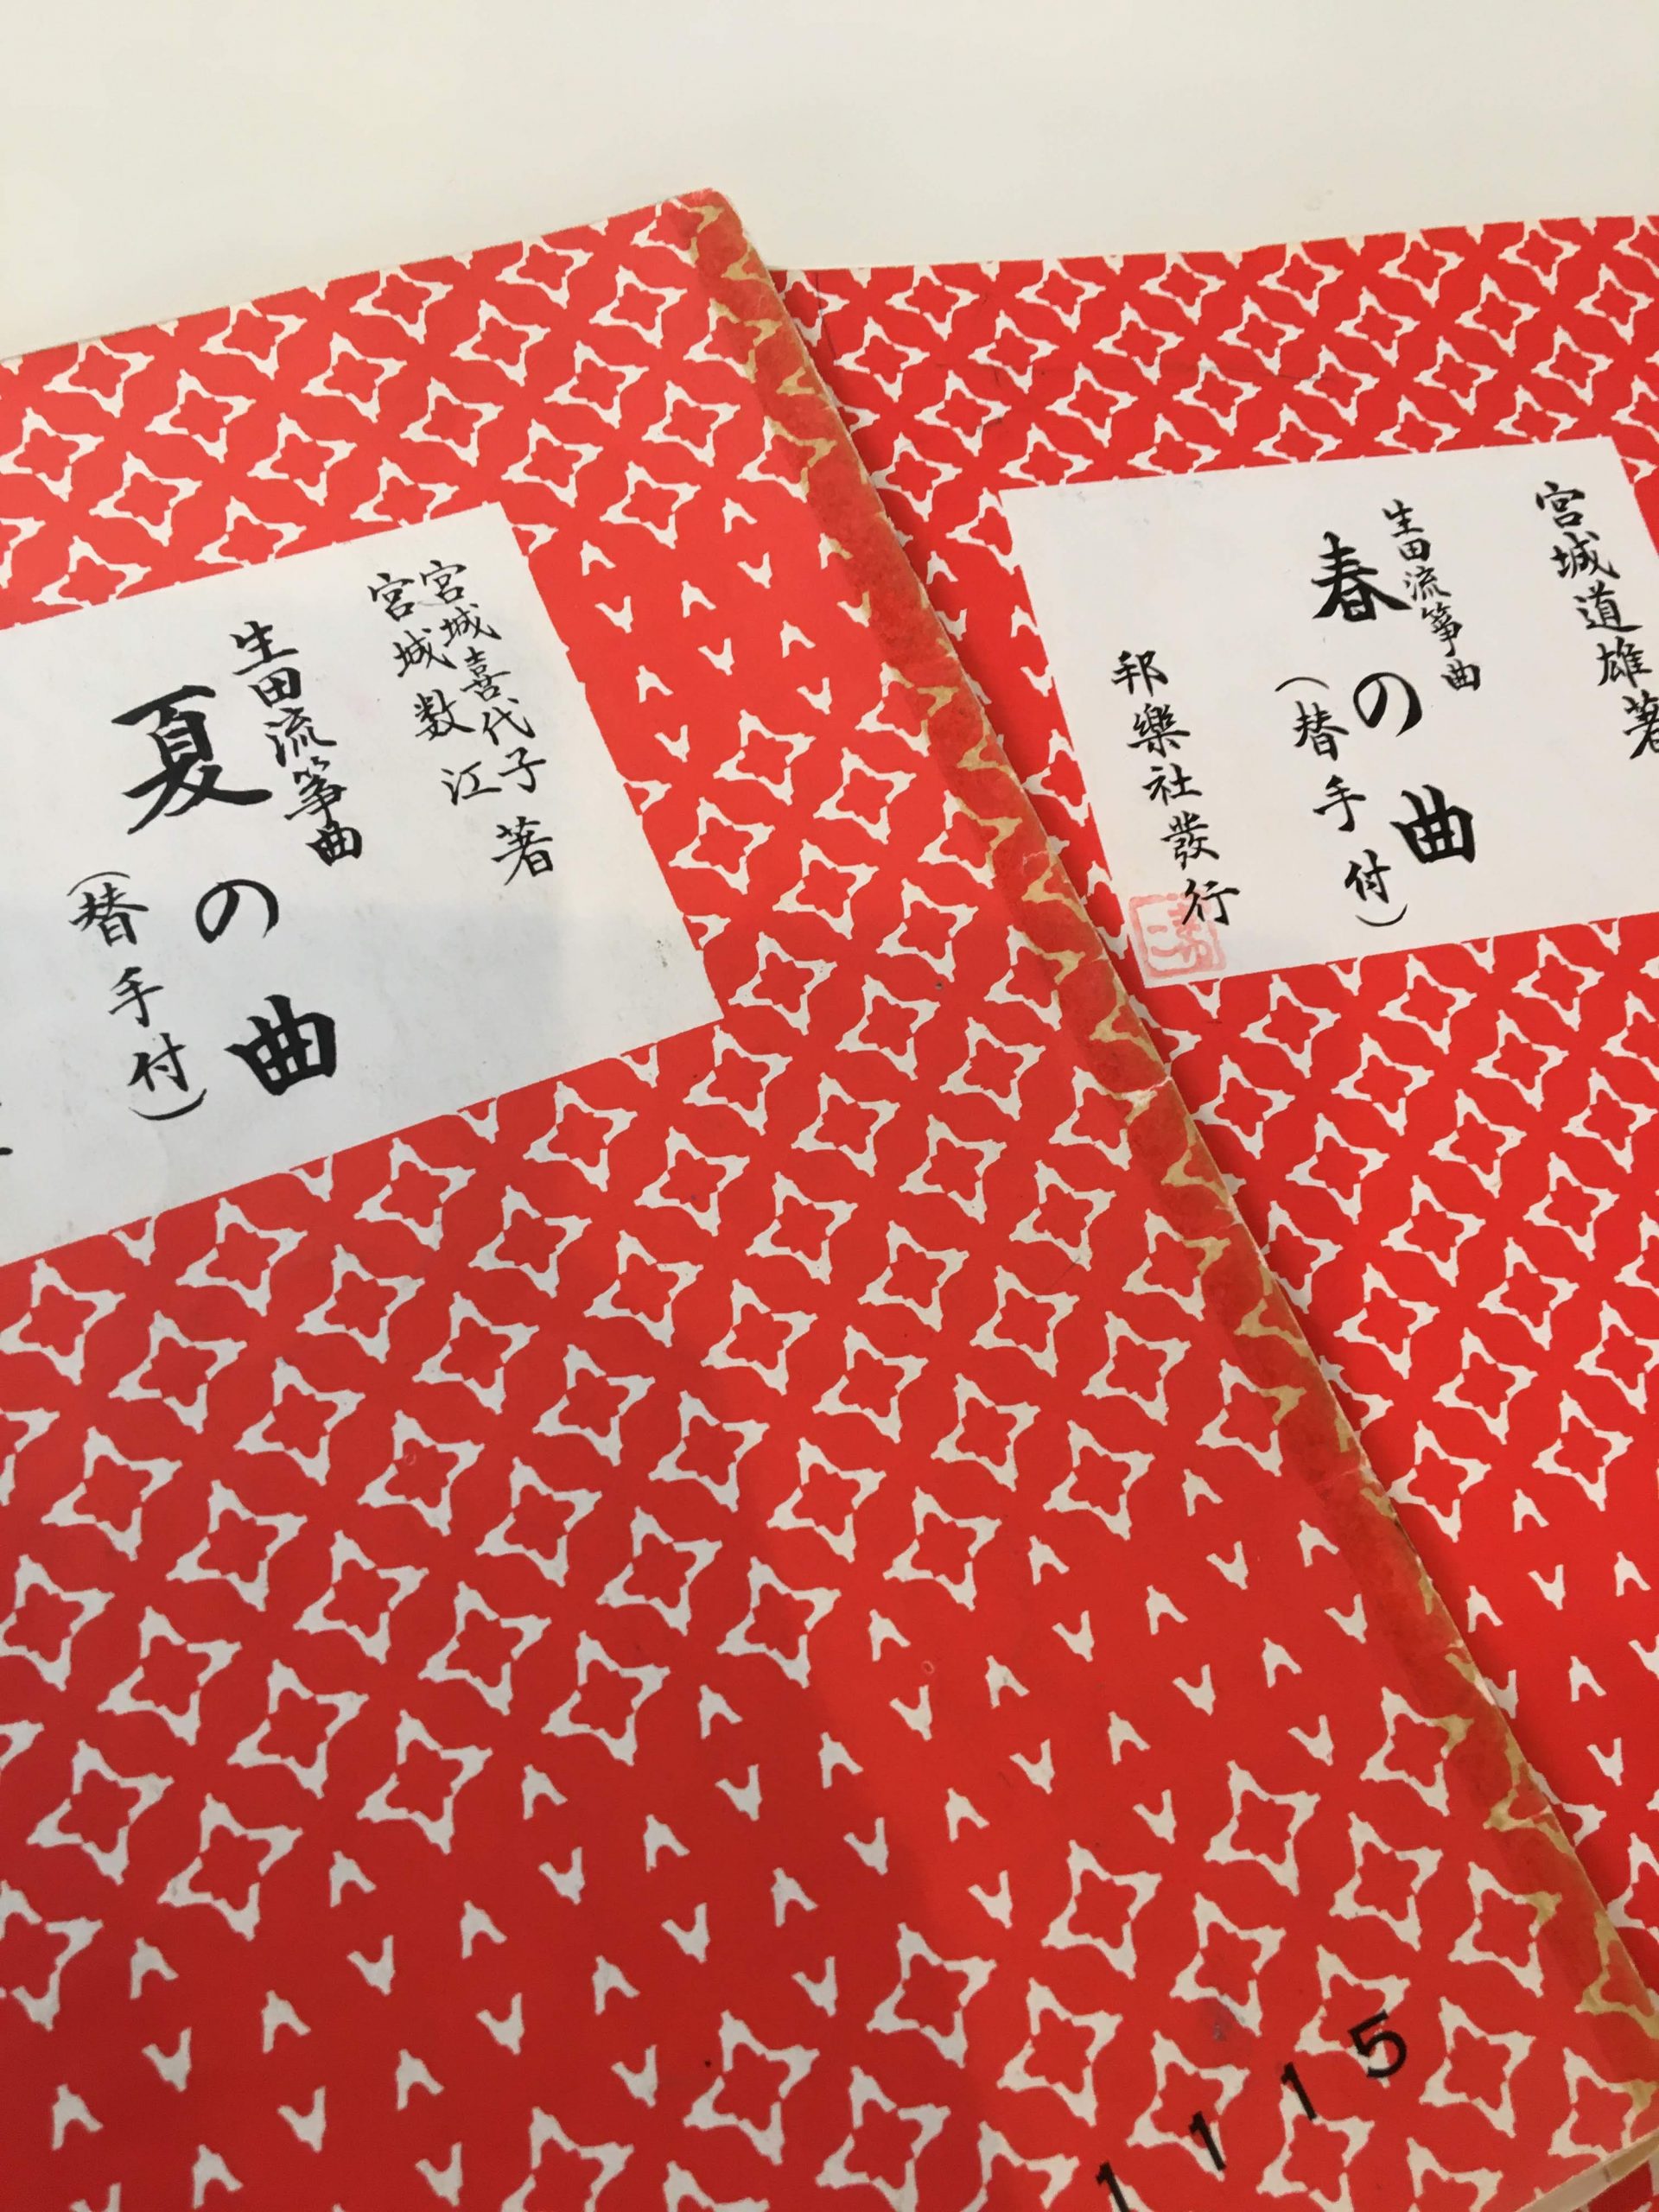 宮城道雄著
生田流箏曲
春の曲
(替手付)
邦樂社發行
宮城喜代子著
宮城数江
生田流箏曲
夏の曲
(替手付)
1115